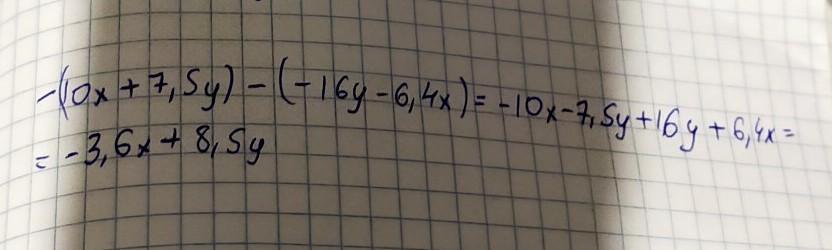 -(10x + 7,5y) - (-16y - 6,4x) = -10x - 7,5y + 16y + 6,4x =
= -3,6x + 8,5y